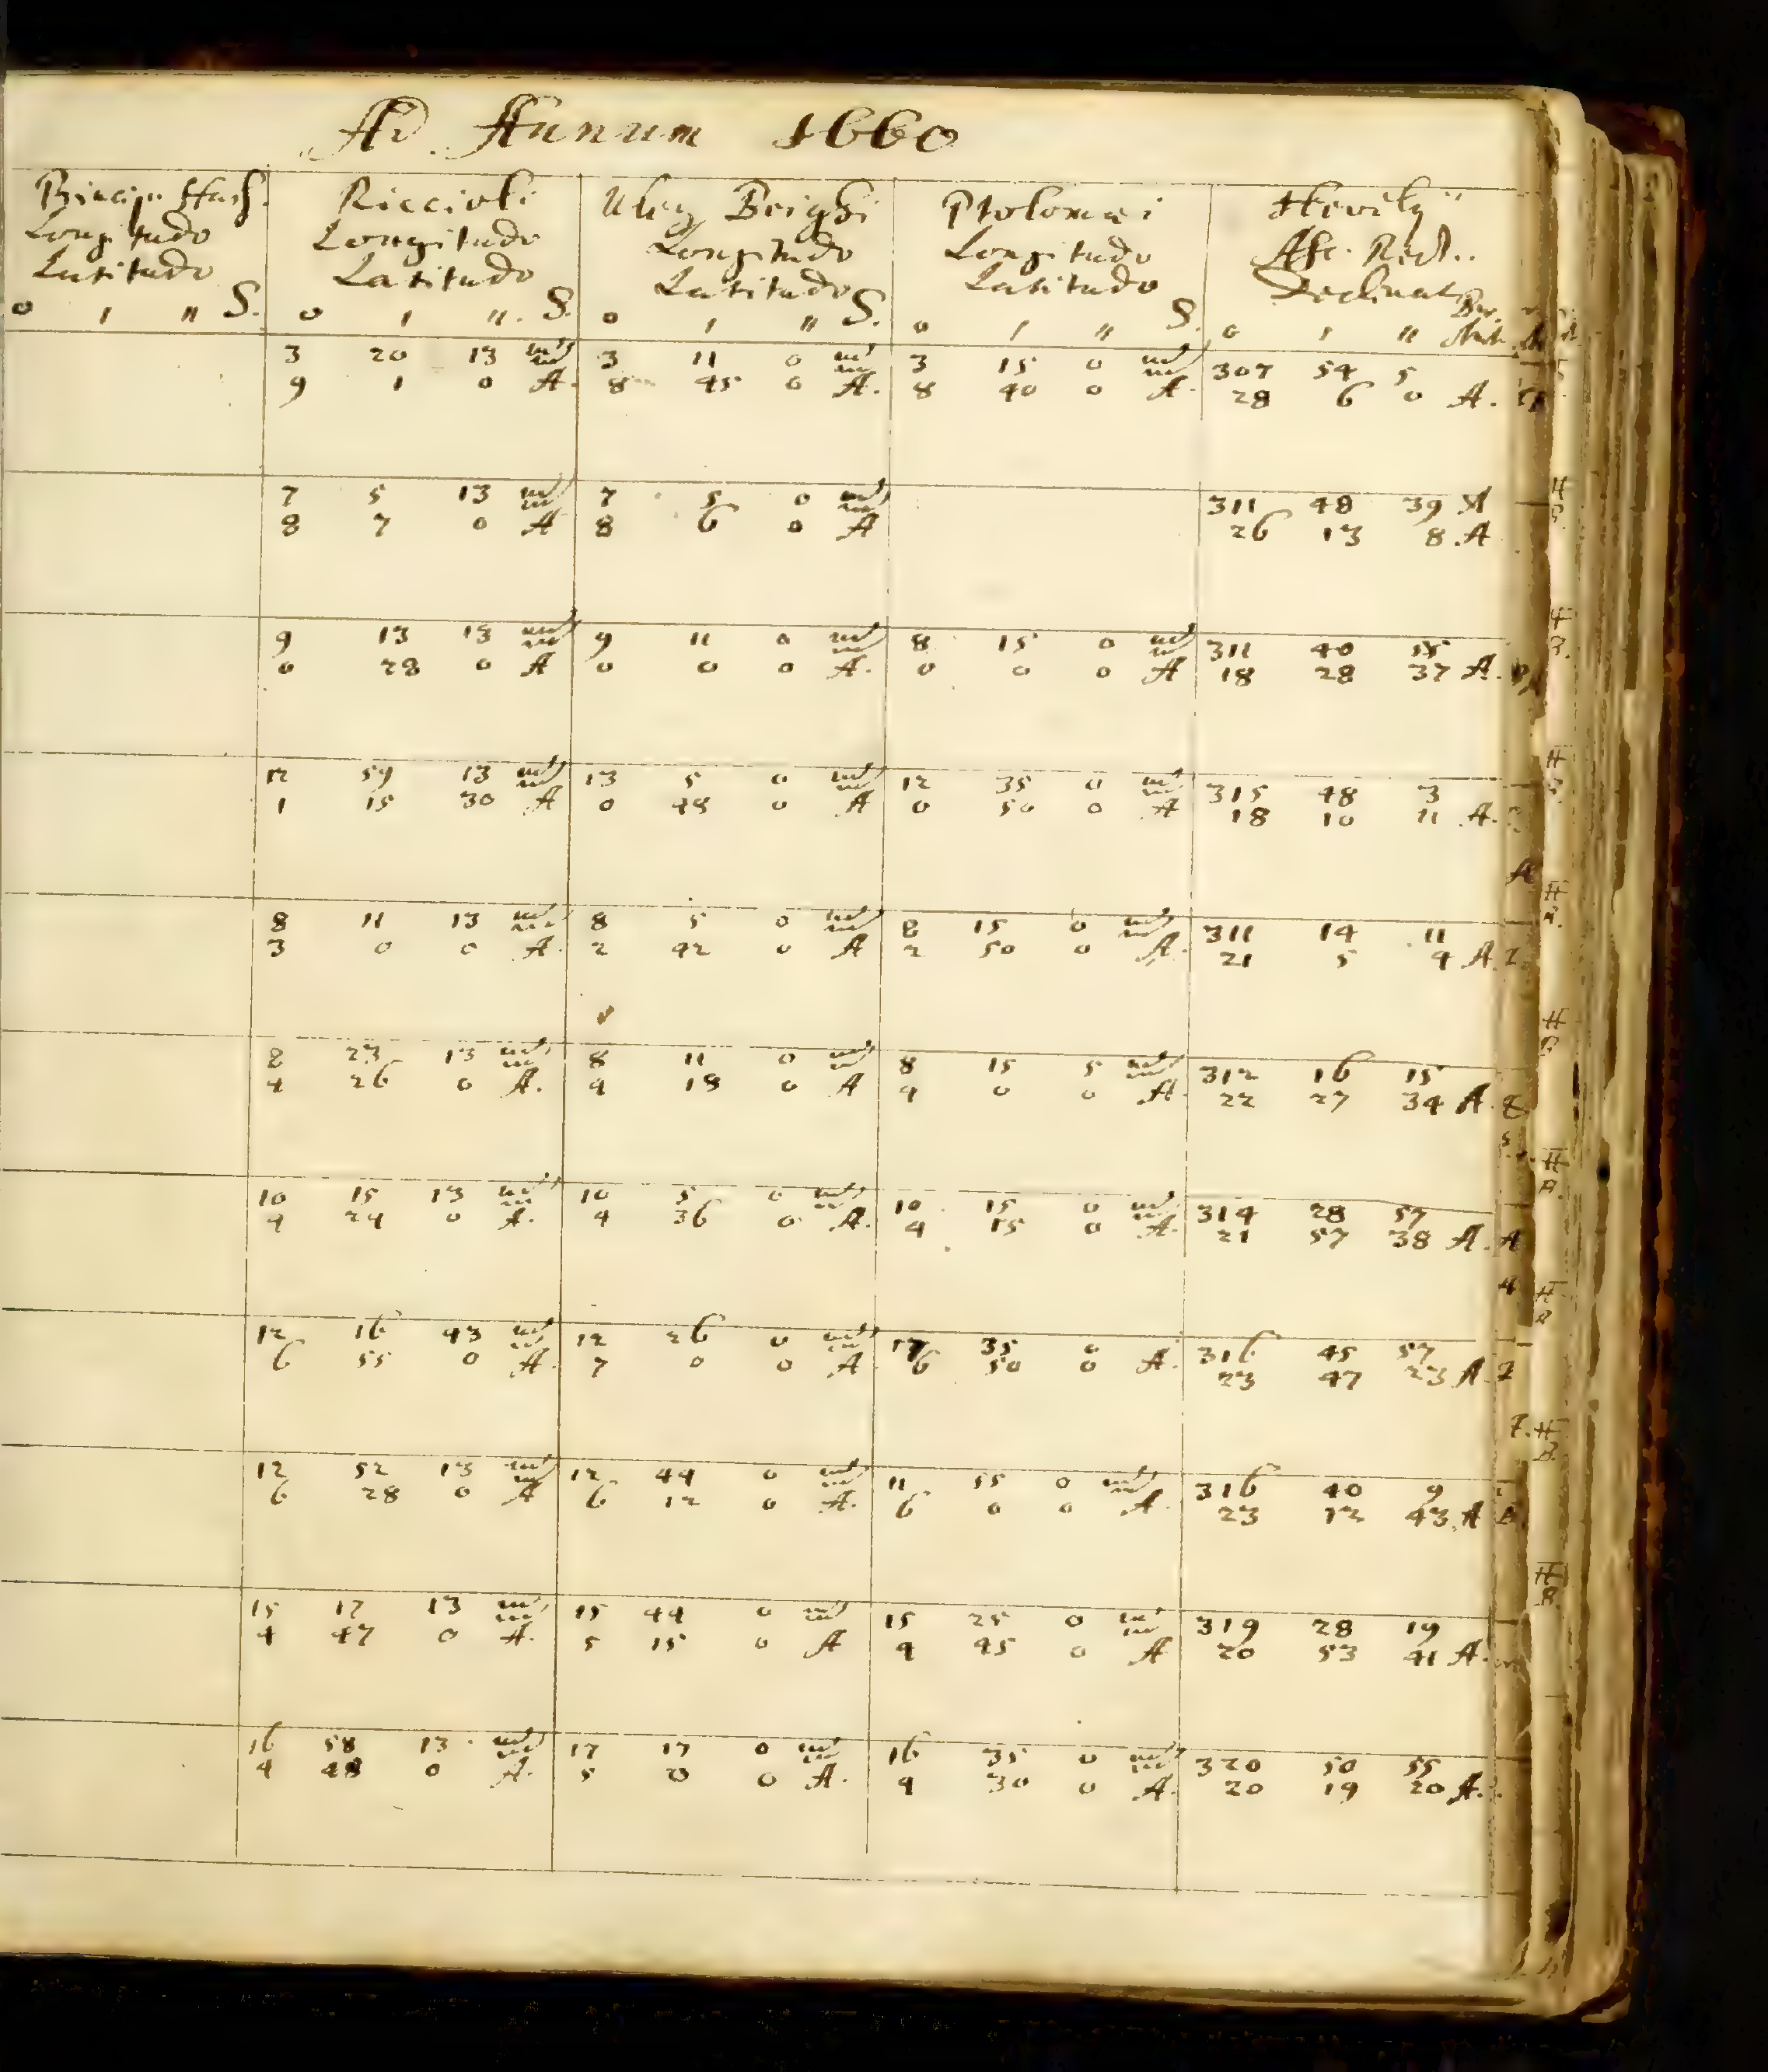 Ad Annum 1660
Princip. Hass. Riccioli Uleg Beighi Ptolomæi Hevelij
Longitudo Longitudo Longitudo Longitudo Asc. Rect.
Latitudo Latitudo Latitudo Latitudo Declinat
° ' " S. ° ' " S. ° ' " S. ° ' " S. ° ' "
3 20 13 ♒ 3 11 0 ♒ 3 15 0 ♒ 307 54 5
9 1 0 A. 8 45 0 A. 8 40 0 A. 28 6 0 A.
7 5 13 ♒ 7 5 0 ♒ 311 48 39 A
8 7 0 A 8 6 0 A 26 13 8 A
9 13 13 ♒ 9 11 0 ♒ 8 15 0 ♒ 311 40 15
0 28 0 A 0 0 0 A. 0 0 0 A 18 28 37 A.
12 59 13 ♒ 13 5 0 ♒ 12 35 0 ♒ 315 48 3
1 15 30 A 0 48 0 A 0 50 0 A 18 10 11 A.
8 11 13 ♒ 8 5 0 ♒ 8 15 0 ♒ 311 14 11
3 0 0 A. 2 42 0 A 2 50 0 A. 21 5 4 A.
8 23 13 ♒ 8 11 0 ♒ 8 15 5 ♒ 312 16 15
4 26 0 A. 4 18 0 A 4 0 0 A. 22 27 34 A.
10 15 13 ♒ 10 5 0 ♒ 10 15 0 ♒ 314 28 57
4 24 0 A. 4 36 0 A. 4 15 0 A. 21 57 38 A.
12 16 43 ♒ 12 26 0 ♒ 35 0 316 45 57
6 55 0 A. 7 0 0 A 6 50 0 A. 23 47 23 A
12 52 13 ♒ 12 44 0 ♒ 11 55 0 ♒ 316 40 9
6 28 0 A 6 12 0 A. 6 0 0 A. 23 12 43 A
15 17 13 ♒ 15 44 0 ♒ 15 25 0 ♒ 319 28 19
4 47 0 A. 5 15 0 A 4 45 0 A 20 53 41 A.
16 58 13 ♒ 17 17 0 ♒ 16 35 0 ♒ 320 50 55
4 48 0 A. 5 0 0 A. 4 30 0 A. 20 19 20 A.